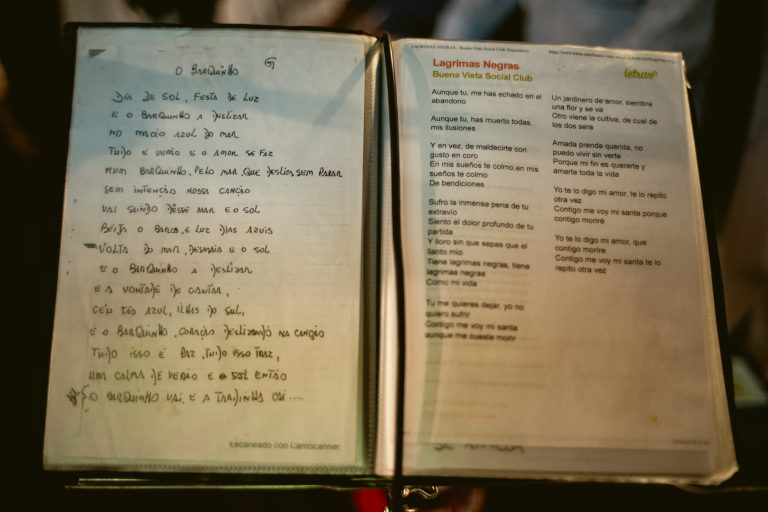 O BARQUINHO
G
DIA DE SOL, FESTA DE LUZ
E O BARQUINHO A DESLIZAR
NO MACIO AZUL DO MAR
TUDO É VERÃO E O AMOR SE FAZ
NUM BARQUINHO, PELO MAR QUE DESLIZA SEM PARAR
SEM INTENÇÃO NOSSA CANÇÃO
VAI SAINDO DESSE MAR E O SOL
BEIJA O BARCO, E LUZ DIAS AZUIS
VOLTA DO MAR, DESMAIA E O SOL
E O BARQUINHO A DESLIZAR
E A VONTADE DE CANTAR,
CÉU TÃO AZUL, ILHAS DO SUL,
E O BARQUINHO, CORAÇÃO DESLIZANDO NA CANÇÃO
TUDO ISSO É PAZ, TUDO ISSO TRAZ,
UMA CALMA DE VERÃO E O SOL ENTÃO
O BARQUINHO VAI, E A TARDINHA CAI....
Escaneado con CamScanner
LAGRIMAS NEGRAS - Buena Vista Social Club
Lagrimas Negras
Buena Vista Social Club
letras
Aunque tu, me has echado en el
abandono
Aunque tu, has muerto todas
mis ilusiones
Y en vez, de maldecirte con
gusto en coro
En mis sueños te colmo,en mis
sueños te colmo
De bendiciones
Sufro la inmensa pena de tu
extravio
Siento el dolor profundo de tu
partida
Y lloro sin que sepas que el
llanto mio
Tiene lagrimas negras, tiene
lagrimas negras
Como mi vida
Tu me quieres dejar, yo no
quiero sufrir
Contigo me voy mi santa
aunque me cueste morir
Un jardinero de amor, siembra
una flor y se va
Otro viene la cultiva, de cual de
los dos sera
Amada prenda querida, no
puedo vivir sin verte
Porque mi fin es quererte y
amarte toda la vida
Yo te lo digo mi amor, te lo repito
otra vez
Contigo me voy mi santa porque
contigo moriré
Yo te lo digo mi amor, que
contigo morire
Contigo me voy mi santa te lo
repito otra vez